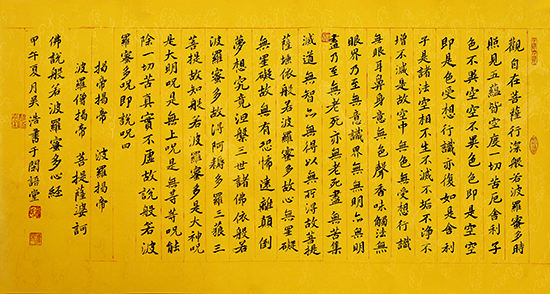 觀自在菩薩行深般若波羅蜜多時
照見五蘊皆空度一切苦厄舍利子
色不異空空不異色色即是空空
即是色受想行識亦復如是舍利
子是諸法空相不生不滅不垢不淨不
增不減是故空中無色無受想行識
無眼耳鼻舌身意無色聲香味觸法無
眼界乃至無意識界無無明亦無無明
盡乃至無老死亦無老死盡無苦集
滅道無智亦無得以無所得故菩提
薩埵依般若波羅蜜多故心無罣礙
無罣礙故無有恐怖遠離顛倒
夢想究竟涅槃三世諸佛依般若
波羅蜜多故得阿耨多羅三藐三
菩提故知般若波羅蜜多是大神咒
是大明咒是無上咒是無等等咒能
除一切苦真實不虛故說般若波
羅蜜多咒即說咒曰
揭帝揭帝 波羅揭帝
波羅僧揭帝 菩提薩婆訶
佛說般若波羅蜜多心經
甲午夏月吳浩書于閑語堂